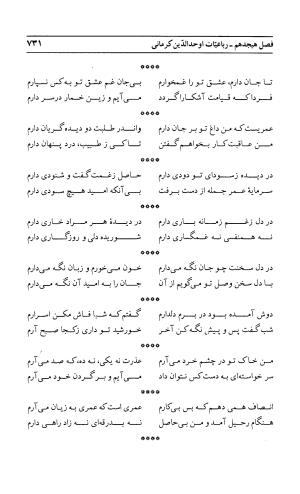 فصل هیجدهم ـ رباعیّات اوحدالدّین کرمانی ۷۳۱
****
تا جان دارم، عشق تو را غمخوارم بی‌جان غم عشق تو به‌کس نسپارم
فردا که قیامت آشکارا گردد می‌آیم و زین خمار در سر دارم
****
عمریست که من داغ تو بر جان دارم واندر طلبت دو دیده گریان دارم
من عاقبت کار بخواهم گفتن تا کی ز طبیب، درد پنهان دارم
****
در دیده ز سودای تو دودی دارم حاصل ز غمت گفت و شنودی دارم
سرمایهٔ عمر جمله از دست برفت بی‌آنکه امید هیچ سودی دارم
****
در دل ز غم زمانه باری دارم در دیدهٔ هر مراد خاری دارم
نه همنفسی نه غمگساری دارم شوریده دلی و روزگاری دارم
****
در دل سخنت چو جان نگه می‌دارم خون می‌خورم و زبان نگه می‌دارم
با دل سخن وصل تو می‌گویم از آن جان را به امید آن نگه می‌دارم
****
دوش آمده بود در برم دلدارم گفتم که شبا فاش مکن اسرارم
شب گفت پس و پیش نگه کن آخر خورشید تو داری ز کجا صبح آرم
****
من خاک تو در چشم خرد می‌آرم عذرت نه یکی، نه ده، که صد می‌آرم
سر خواسته‌ای به دست کس نتوان داد می‌آیم و بر گردن خود می‌آرم
****
انصاف همی دهم که بس بی‌کارم عمری است که عمری به زیان می‌آرم
هنگام رحیل آمد و من بی‌حاصل نه بدرقه‌ای نه زاد راهی دارم
****